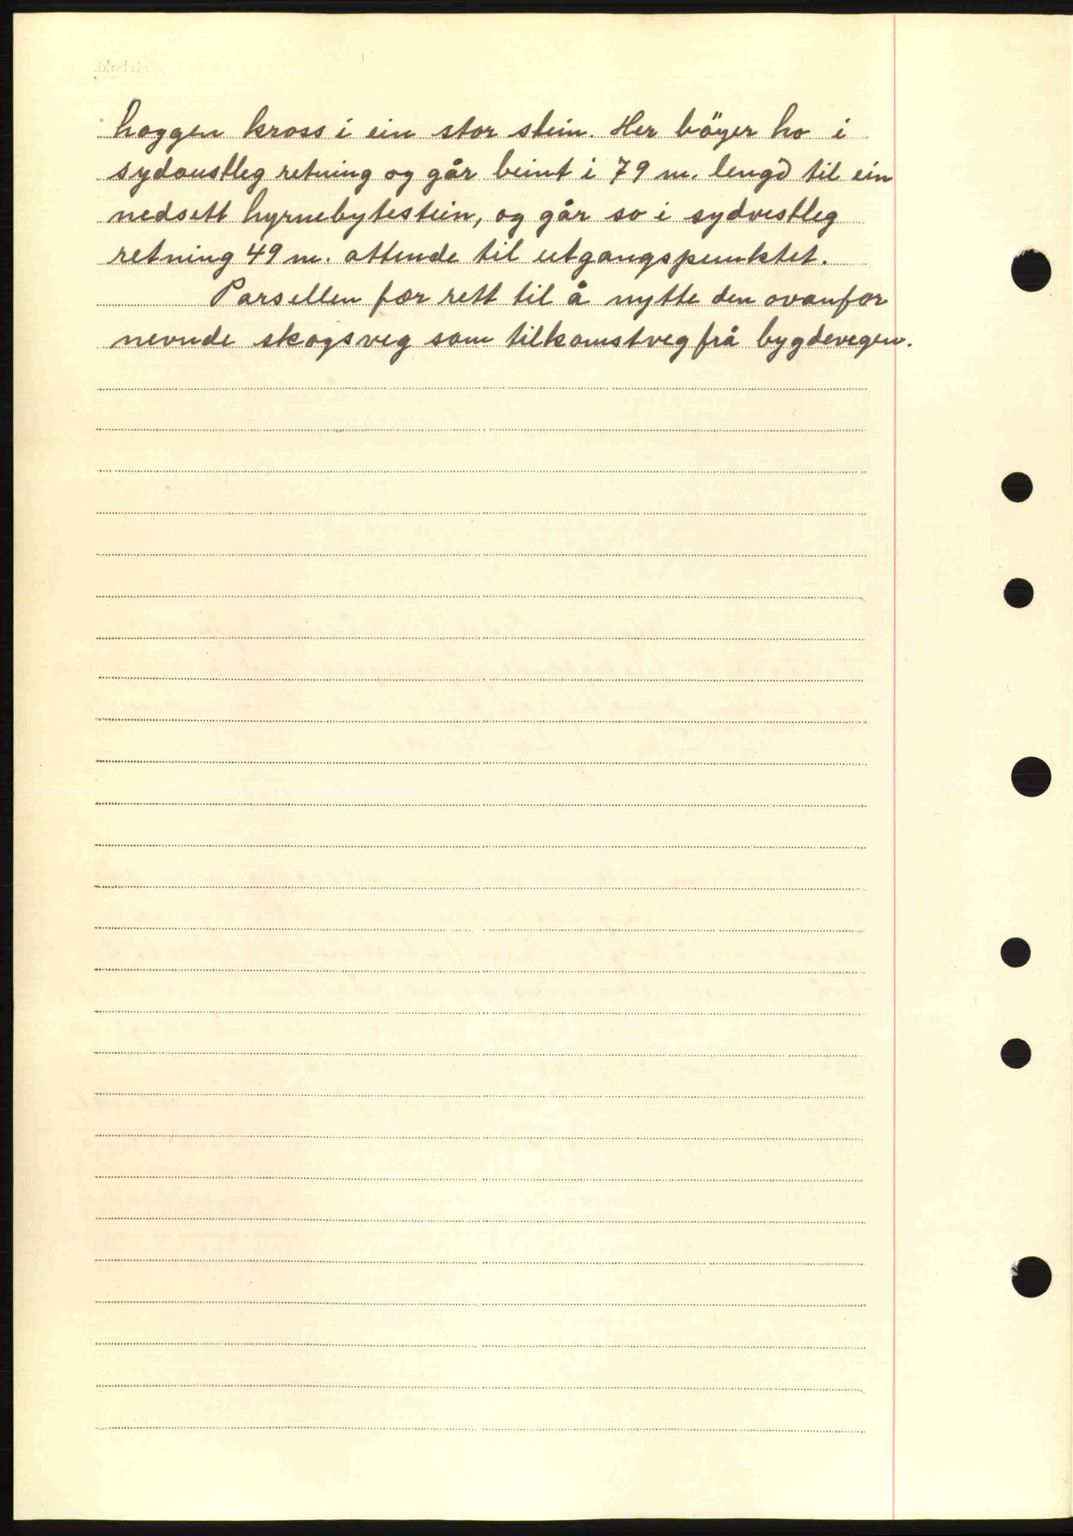 hoggen kross i ein stor stein. Her böyer ho i
sydaustleg retning og går beint i 79 m. lengd til ein
nedsett hyrnebytestein, og går so i sydvestleg
retning 49 m. attende til utgangspunktet.
Parsellen fær rett til å nytte den ovanfor
nevnde skogsveg som tilkomstveg frå bygdevegen.